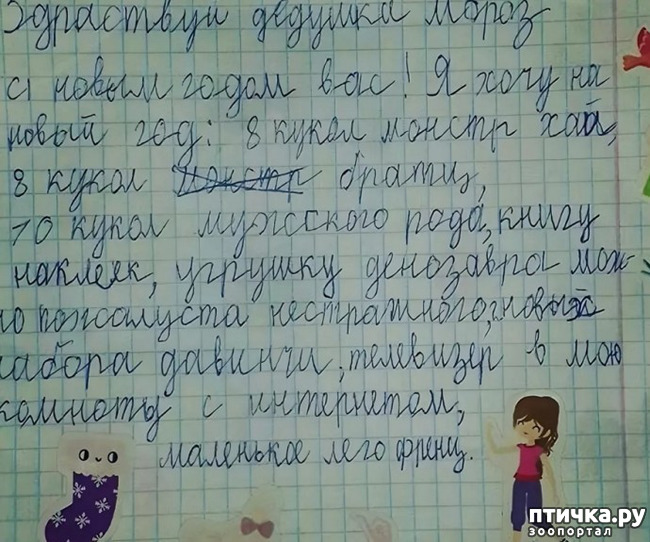 Здраствуй дедушка мороз
с новым годом вас! Я хочу на
новый год: 8 кукол монстр хай,
8 кукол монстр братц,
10 кукол мужсского рода, книгу
наклеяк, угрушку денозавра мож-
но пожалуста нестрашного, новых
набора давинчи, телевизер в мою
комноты с интернетом,
маленькое лего френц.
птичка.ру
зоопортал